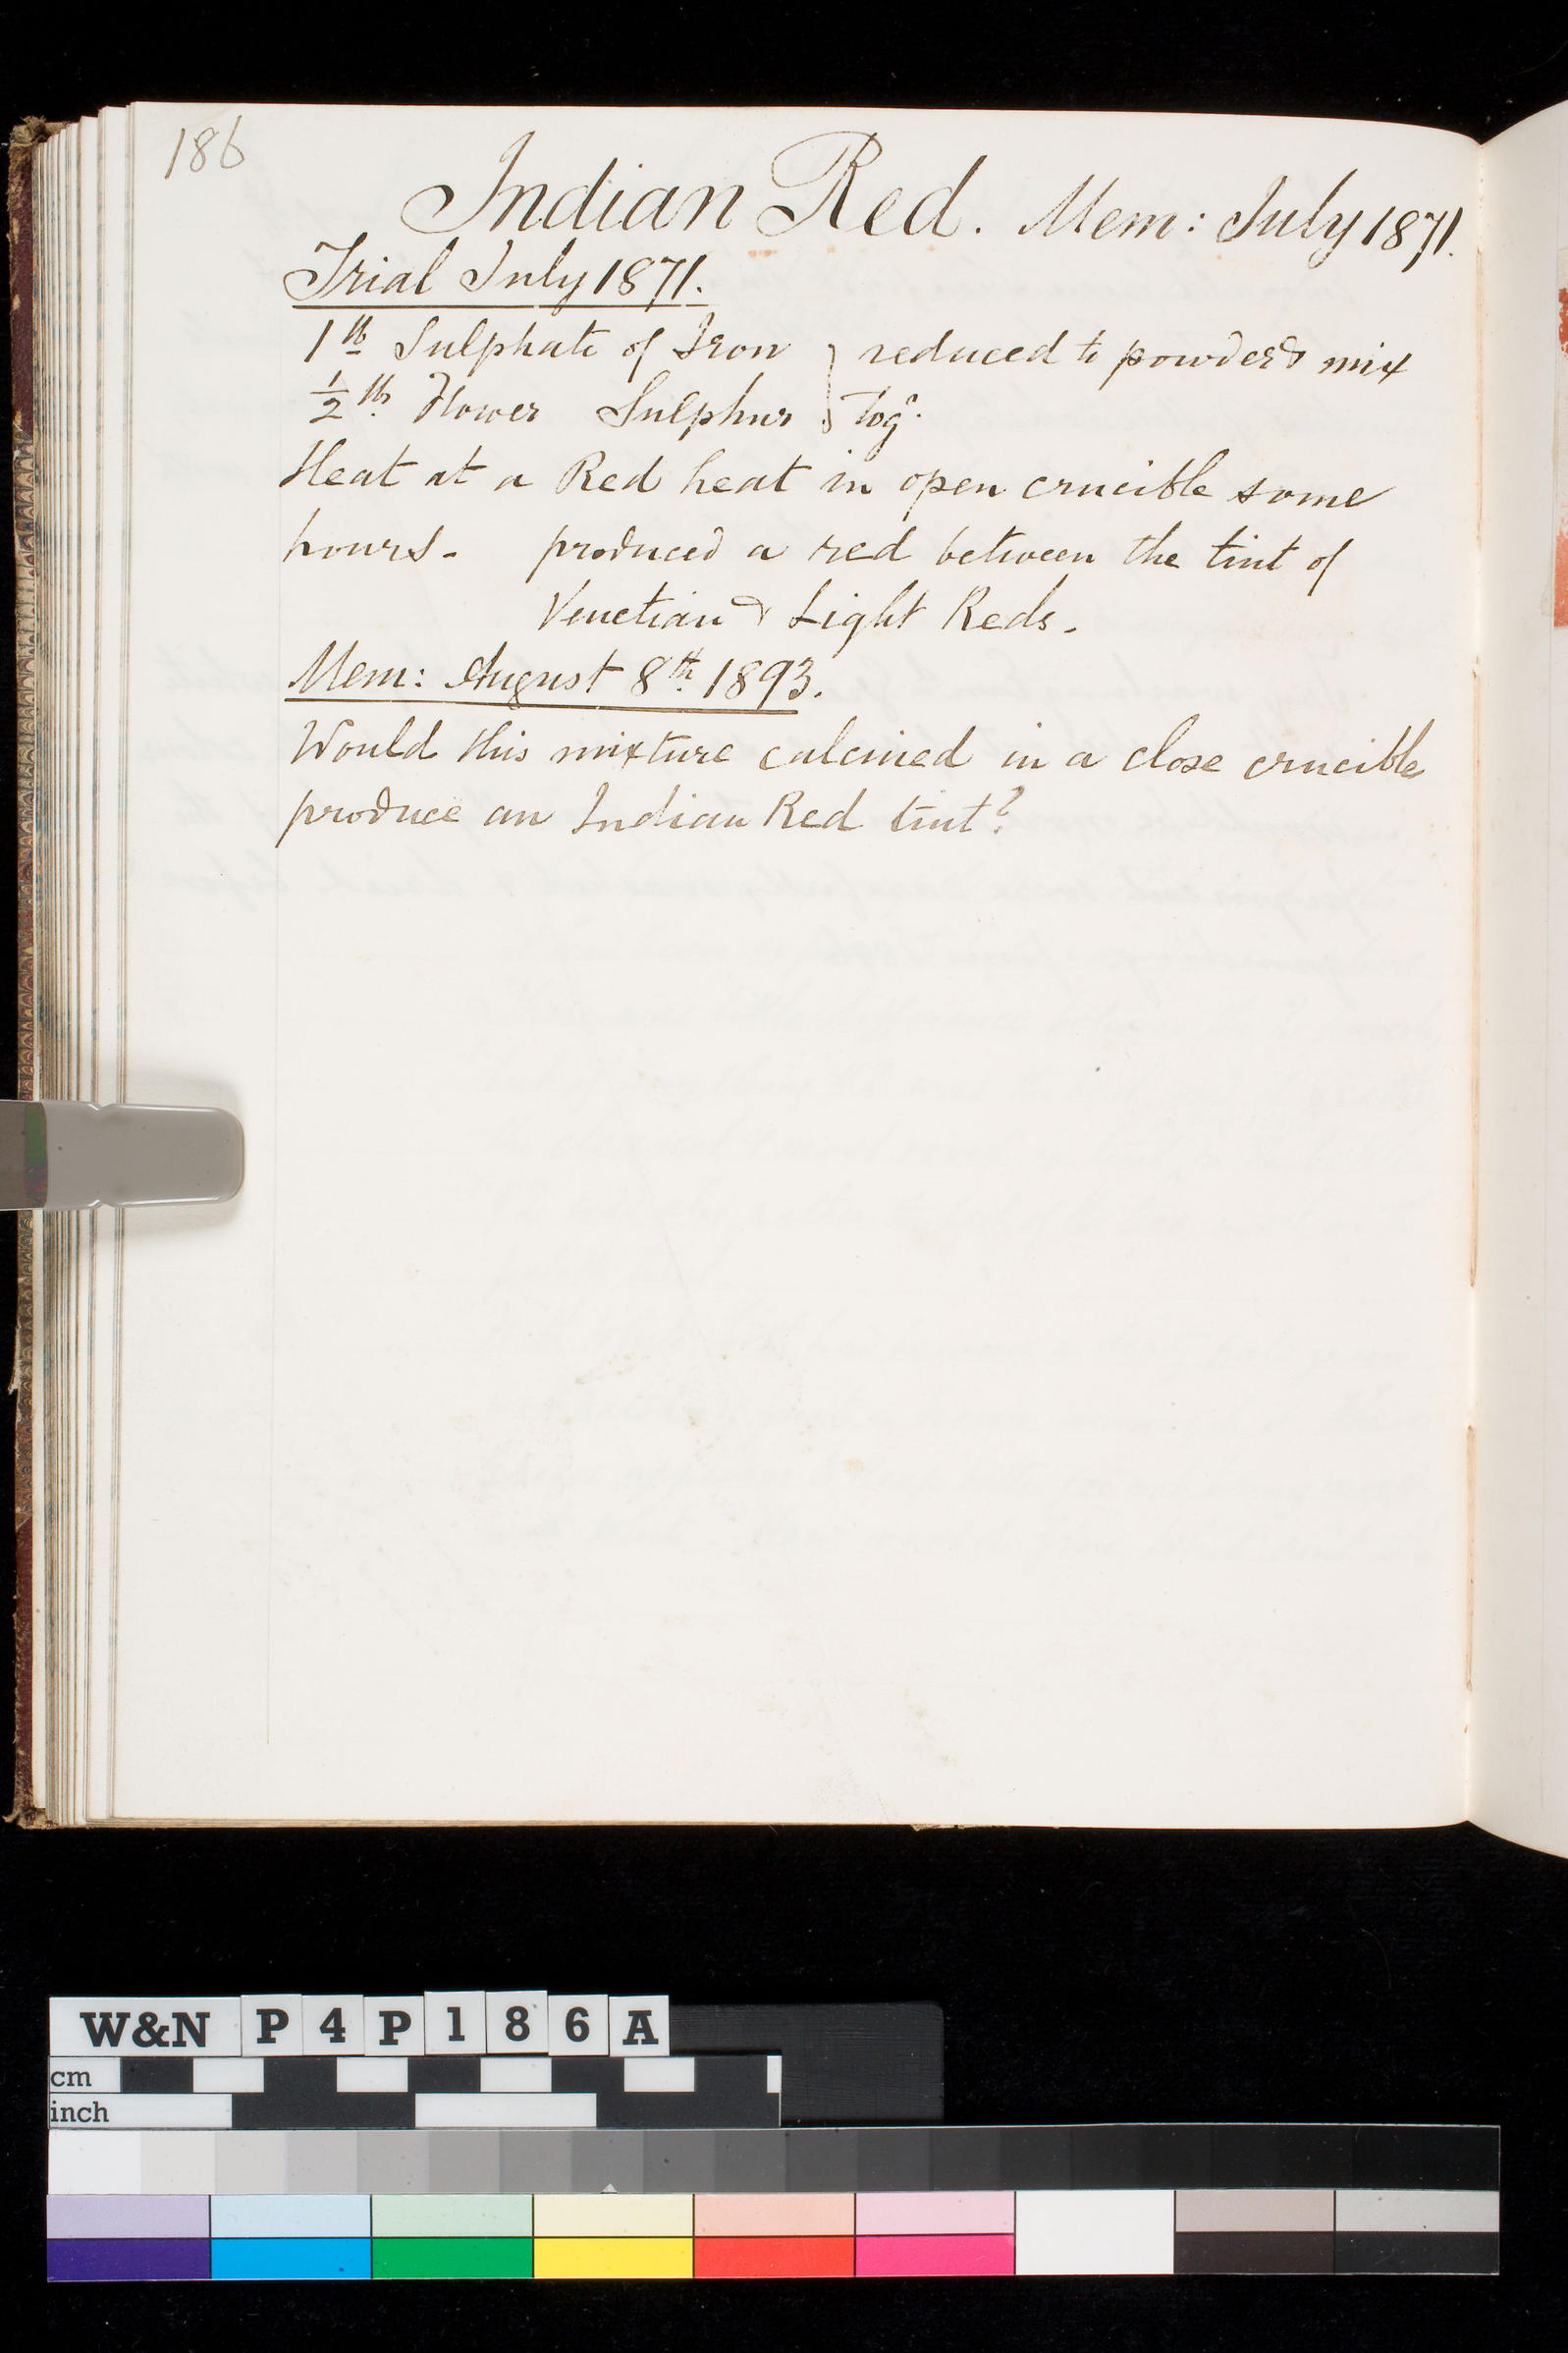 186
Indian Red. Mem: July 1871.
Trial July 1871.
1 lb Sulphate of Iron } reduced to powder & mix
1/2 lb. Flower Sulphur } Togr.
Heat at a Red heat in open crucible some
hours - produced a red between the tint of
Venetian & Light Reds.
Mem: August 8th. 1893.
Would this mixture calcined in a close crucible
produce an Indian Red tint?
W&N P4P186A
cm
inch